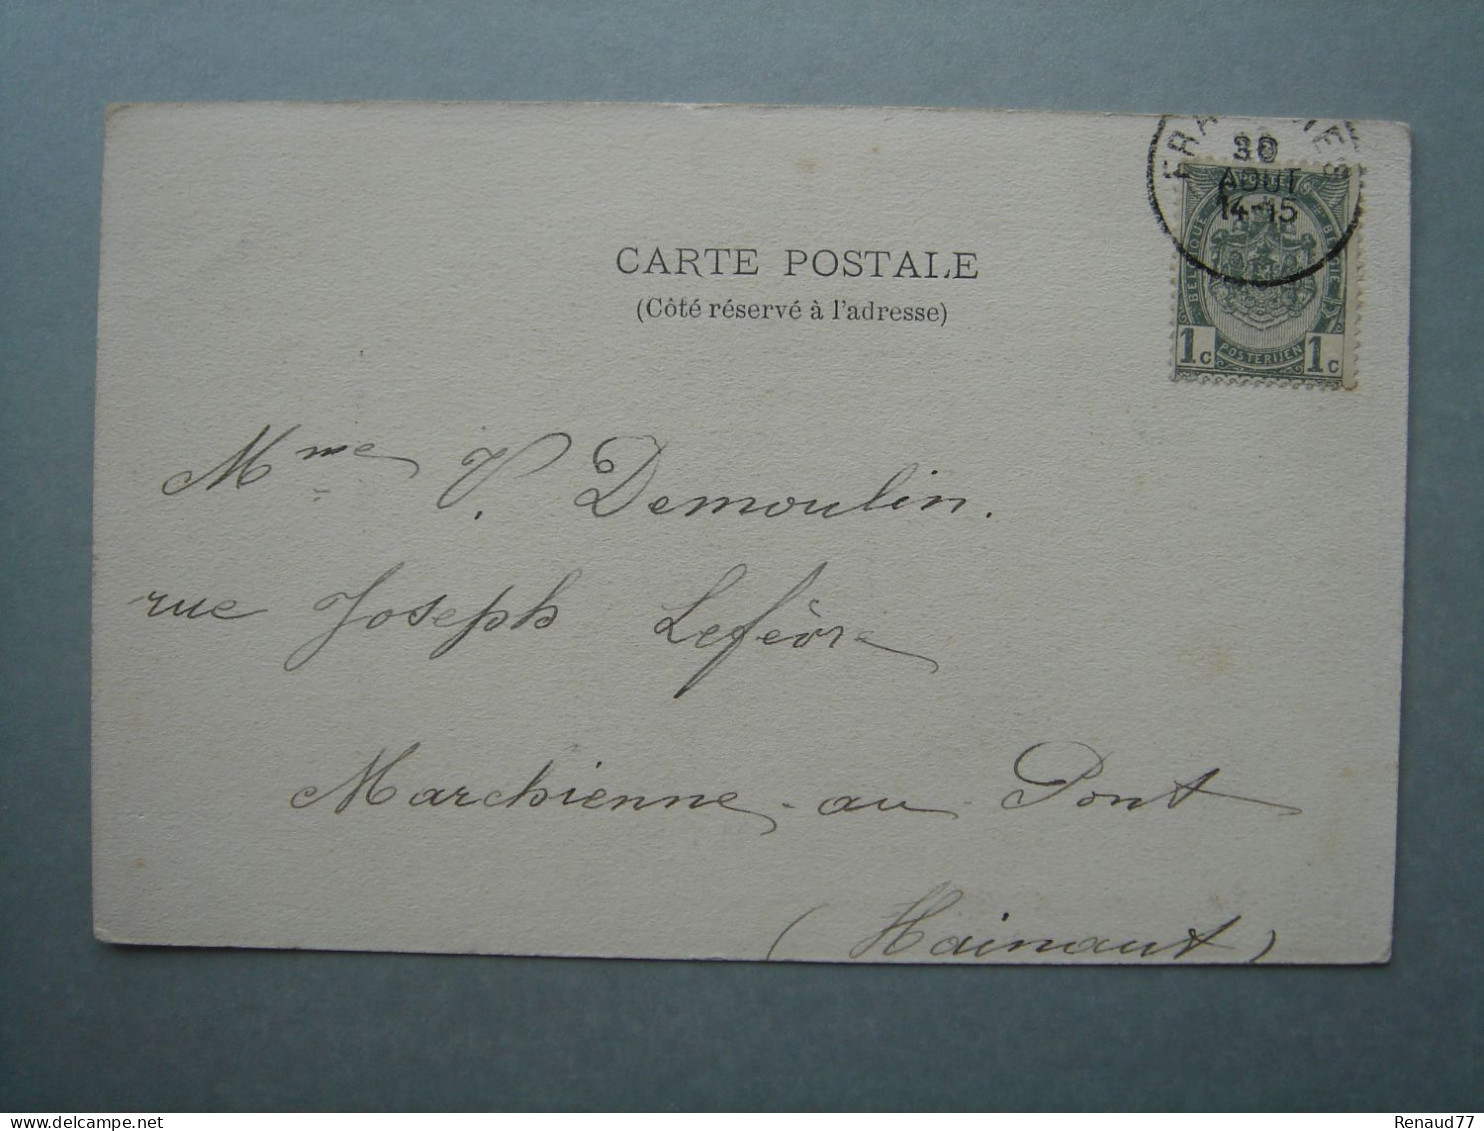 30
AOUT
14-15
BELGIQUE POSTES BELGIE
1c POSTERIJEN 1c
CARTE POSTALE
(Côté réservé à l'adresse)
Mme V. Demoulin.
rue Joseph Lefèvre
Marchienne-au-Pont
(Hainaut)
www.delcampe.net
Renaud77